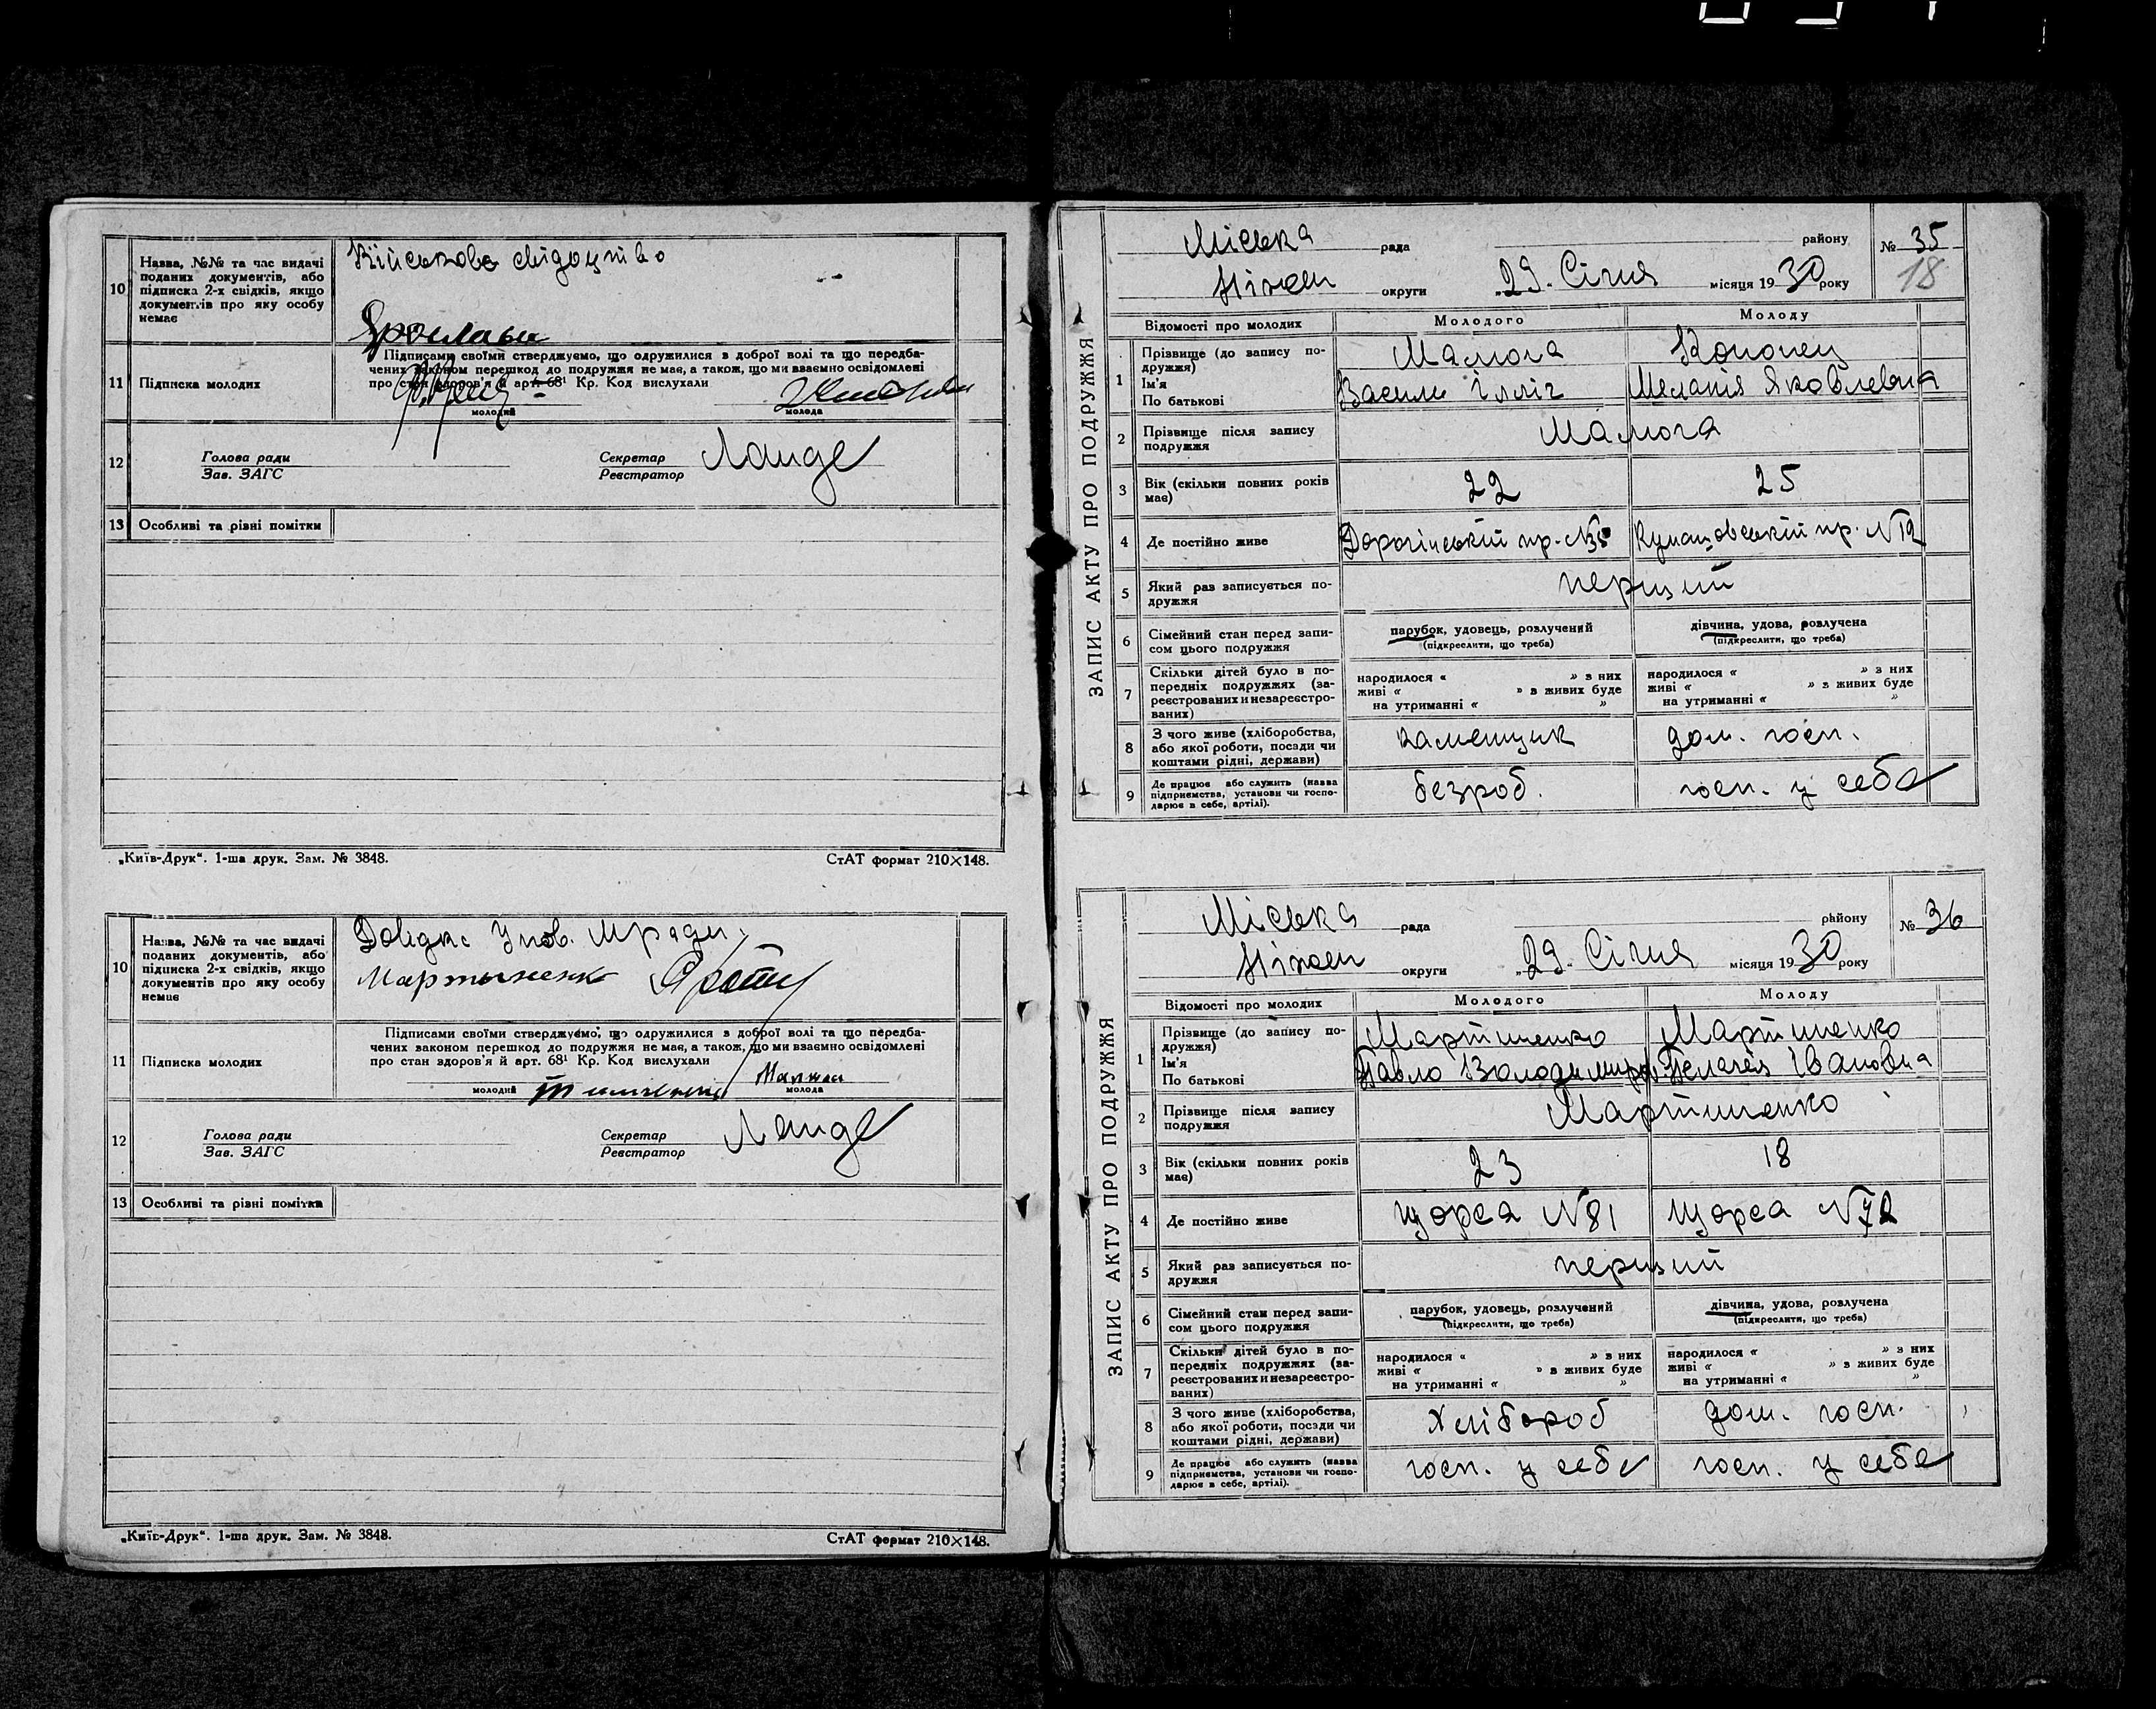 10
Назва, №№ та час видачі
поданих документів, або
підписка 2-х свідків, якщо
документів про яку особу
немає
Військове свідоцтво
11
Підписка молодих
Підписами своїми стверджуємо, що одружилися з доброї волі та що передба-
чених законом перешкод до подружжя не має, а також, що ми взаємно освідомлені
про стан здоров'я й арт. 68¹ Кр. Код вислухали
молодий
молода
12
Голова ради
Зав. ЗАГС
Секретар
Реєстратор
Ланде
13
Особливі та рівні помітки
„Київ-Друк“. 1-ша друк. Зам. № 3848.
СтАТ формат 210×148.
10
Назва, №№ та час видачі
поданих документів, або
підписка 2-х свідків, якщо
документів про яку особу
немає
Довідка Упов. Мради.
11
Підписка молодих
Підписами своїми стверджуємо, що одружилися з доброї волі та що передба-
чених законом перешкод до подружжя не має, а також, що ми взаємно освідомлені
про стан здоров'я й арт. 68¹ Кр. Код вислухали
молодий
молода
12
Голова ради
Зав. ЗАГС
Секретар
Реєстратор
Ланде
13
Особливі та рівні помітки
„Київ-Друк“. 1-ша друк. Зам. № 3848.
СтАТ формат 210×148.
ЗАПИС АКТУ ПРО ПОДРУЖЖЯ
Міська рада району № 35
Ніжен округи „29„ Січня місяця 1930 року
18
Відомості про молодих
Молодого
Молоду
1
Прізвище (до запису по-
дружжя)
Ім'я
По батькові
Мамога
Василь Ілліч
Кононец
Меланія Яковлевна
2
Прізвище після запису
подружжя
Мамога
3
Вік (скільки повних років
має)
22
25
4
Де постійно живе
пр. №
пр. № 12
5
Який раз записується по-
дружжя
перший
6
Сімейний стан перед запи-
сом цього подружжя
парубок, удовець, розлучений
(підкреслити, що треба)
дівчина, удова, розлучена
(підкреслити, що треба)
7
Скільки дітей було в по-
передніх подружжях (за-
реєстрованих и незареєстро-
ваних)
народилося « » з них
живі « » з живих буде
на утриманні « »
народилося « » з них
живі « » з живих буде
на утриманні « »
8
З чого живе (хліборобства,
або якої роботи, посади чи
коштами рідні, держави)
каменщик
дом. госп.
9
Де працює або служить (назва
підприємства, установи чи госпо-
дарює в себе, артілі).
безроб.
госп. у себе
ЗАПИС АКТУ ПРО ПОДРУЖЖЯ
Міська рада району № 36
Ніжен округи „29„ Січня місяця 1930 року
Відомості про молодих
Молодого
Молоду
1
Прізвище (до запису по-
дружжя)
Ім'я
По батькові
Мартиненко
Павло Володимиров
Мартиненко
Пелагея Івановна
2
Прізвище після запису
подружжя
Мартиненко
3
Вік (скільки повних років
має)
23
18
4
Де постійно живе
Щорса № 81
Щорса № 72
5
Який раз записується по-
дружжя
перший
6
Сімейний стан перед запи-
сом цього подружжя
парубок, удовець, розлучений
(підкреслити, що треба)
дівчина, удова, розлучена
(підкреслити, що треба)
7
Скільки дітей було в по-
передніх подружжях (за-
реєстрованих и незареєстро-
ваних)
народилося « » з них
живі « » з живих буде
на утриманні « »
народилося « » з них
живі « » з живих буде
на утриманні « »
8
З чого живе (хліборобства,
або якої роботи, посади чи
коштами рідні, держави)
Хлібороб
дом. госп.
9
Де працює або служить (назва
підприємства, установи чи госпо-
дарює в себе, артілі).
госп. у себе
госп. у себе